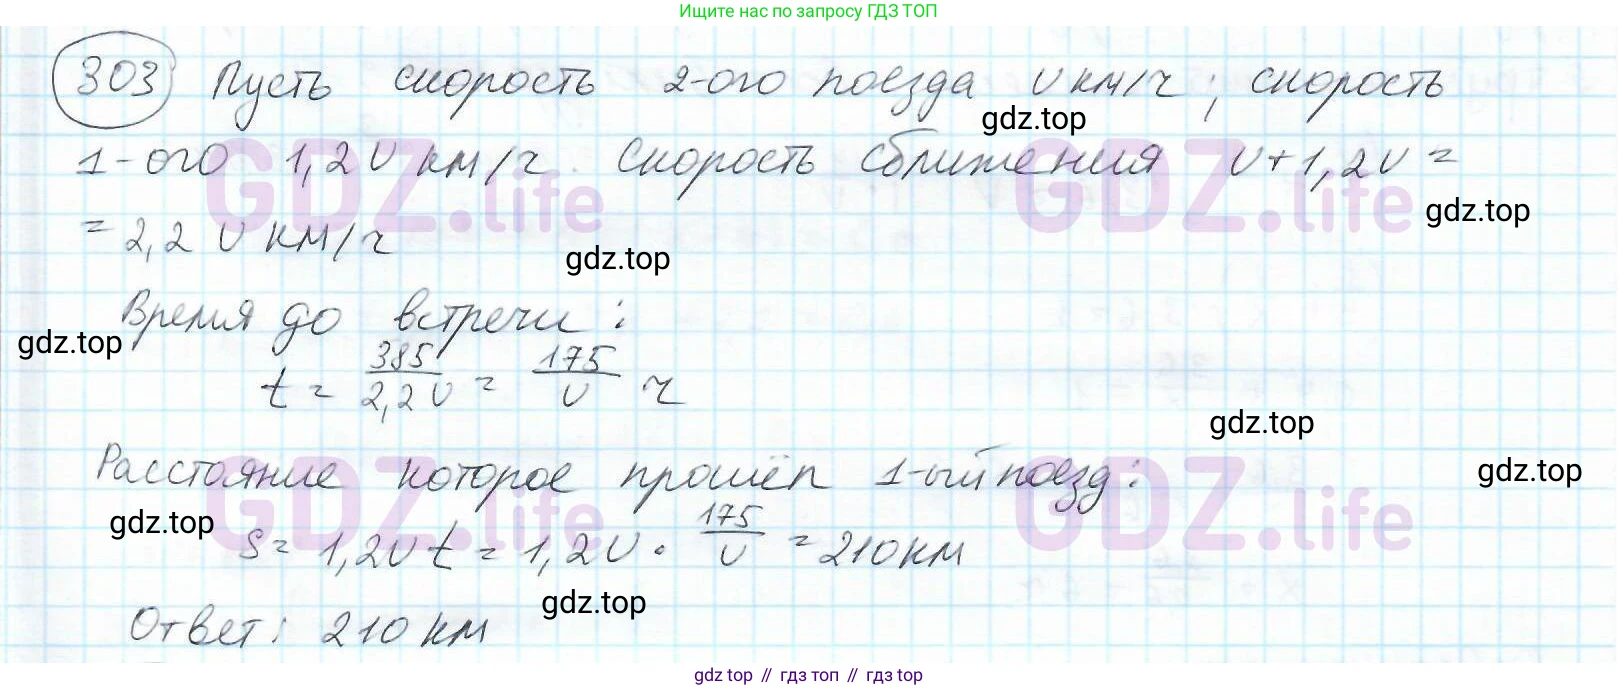 Ищите нас по запросу ГДЗ ТОП
303 Пусть скорость 2-ого поезда v км/ч; скорость
gdz.top
1-ого 1,2v км/ч. Скорость сближения v+1,2v =
GDZ.life GDZ.life
gdz.top
= 2,2 v км/ч
gdz.top
Время до встречи:
gdz.top
t = 385/2,2v = 175/v ч
gdz.top
Расстояние которое прошёл 1-ый поезд:
gdz.top
GDZ.life GDZ.life
gdz.top
S = 1,2v t = 1,2v · 175/v = 210км
gdz.top
Ответ: 210 км
gdz top // гдз топ // гдз top